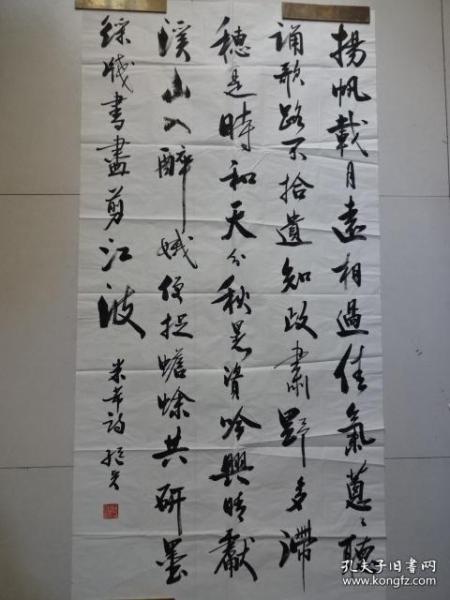 揚帆載月遠相過佳氣蔥〻聽
誦歌路不拾遺知政肅野多滯
穗是時和天分秋暑資吟興晴獻
溪山入醉娥便捉蟾蜍共研墨
綵牋書盡剪江波
米芾詩
孔夫子旧书网
www.kongfz.com